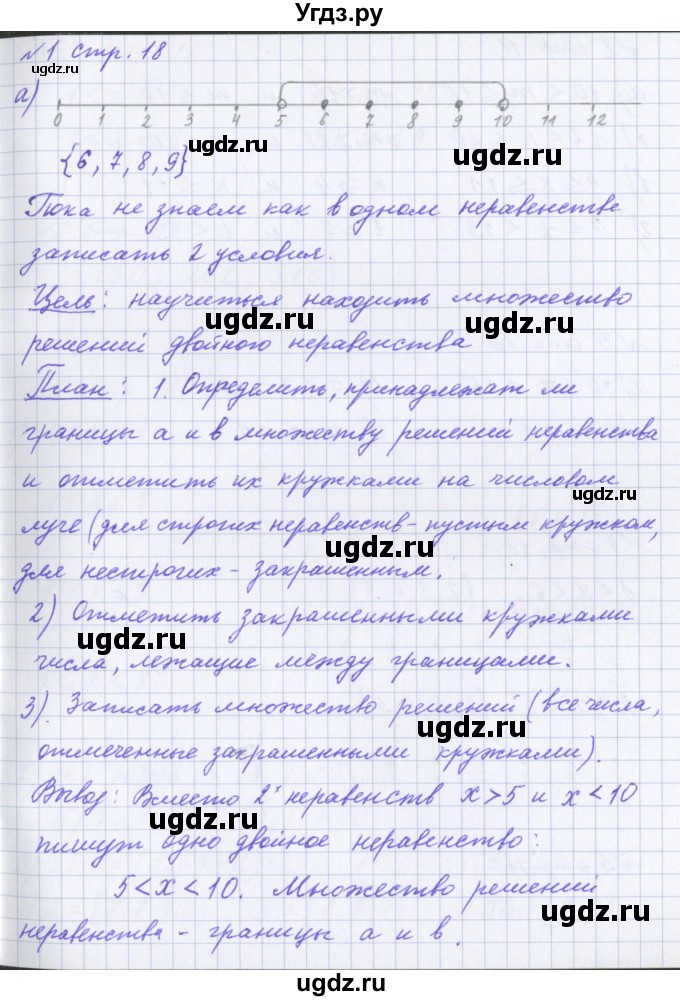 Угдз.ру
№1 стр. 18
ugdz.ru
а)
0 1 2 3 4 5 6 7 8 9 10 11 12
{6, 7, 8, 9}
ugdz.ru
ugdz.ru
Пока не знаем как в одном неравенстве
записать 2 условия.
ugdz.ru
Цель: научиться находить множество
ugdz.ru
ugdz.ru
решений двойного неравенства
План: 1. Определить, принадлежат ли
границы а и в множеству решений неравенства
и отметить их кружками на числовом
ugdz.ru
луче (для строгих неравенств - пустым кружком,
ugdz.ru
для нестрогих - закрашенным.
2) Отметить закрашенными кружками
ugdz.ru
числа, лежащие между границами.
3). Записать множество решений (все числа,
ugdz.ru
отмеченные закрашенными кружками).
Вывод: Вместо 2х неравенств x > 5 и x < 10
ugdz.ru
пишут одно двойное неравенство:
5 < x < 10. Множество решений
ugdz.ru
неравенства - границы а и в.
ugdz.ru
ugdz.ru